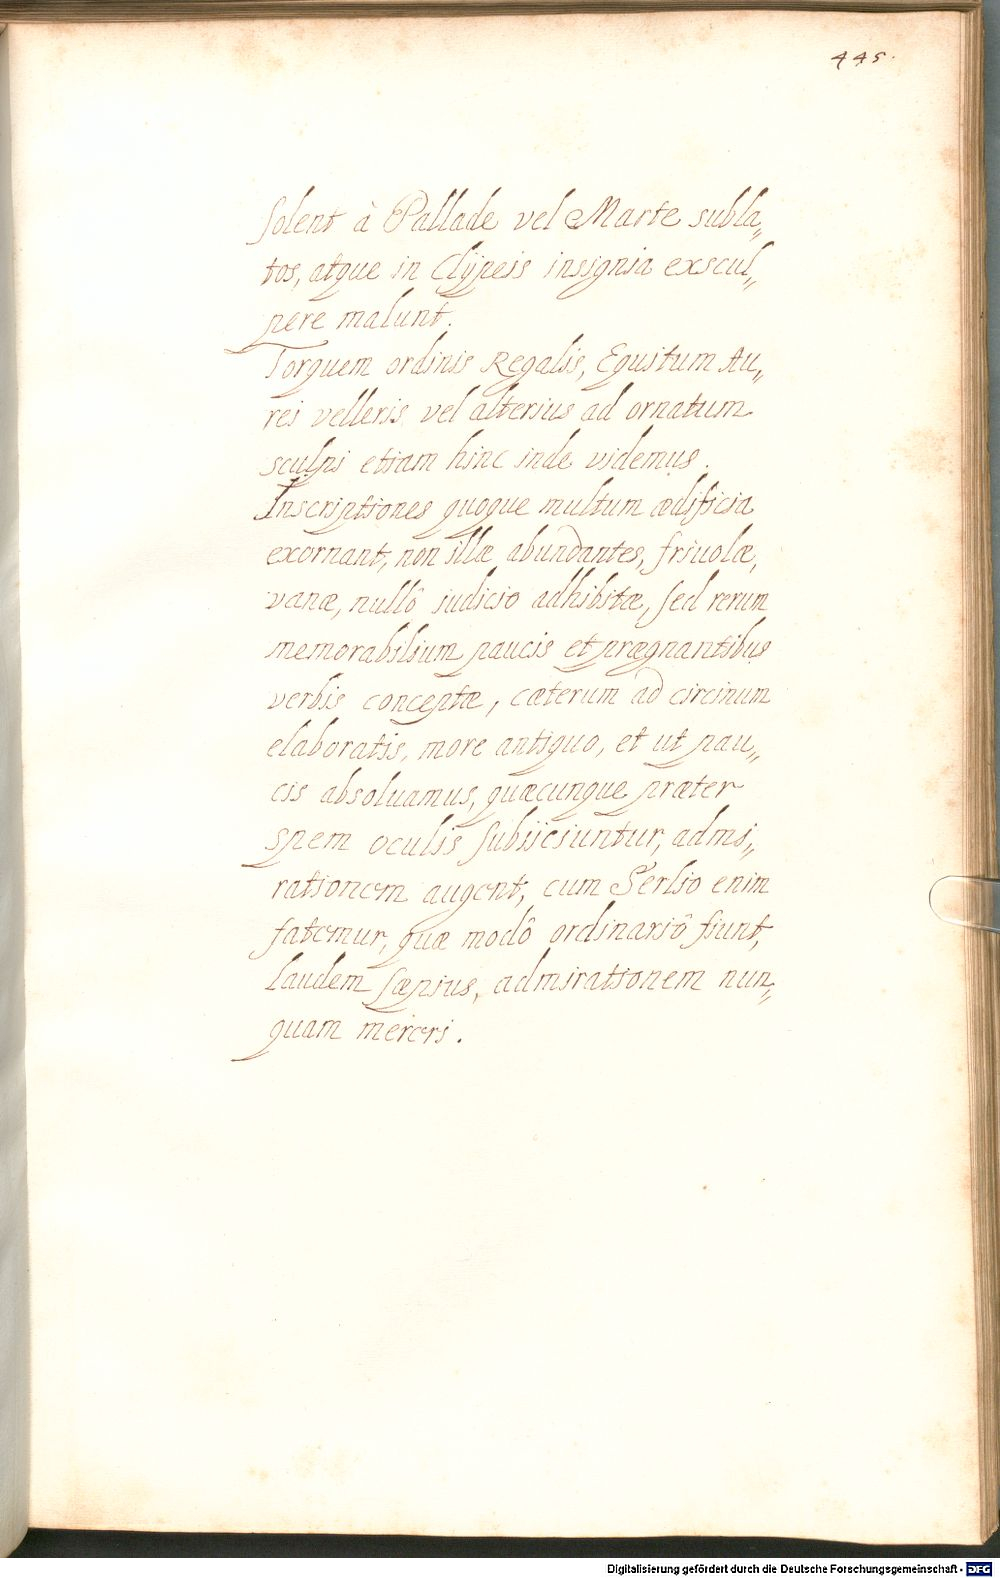 445.
solent à Pallade vel Marte subla„
tos, atque in Clÿpeis insignia exscul„
pere malunt.
Torquem ordinis Regalis, Equitum Au„
rei velleris vel alterius ad ornatum
sculpi etiam hinc inde videmus.
Inscriptiones quoque multum ædificia
exornant, non illæ abundantes, friuolæ,
vanæ, nullô judicio adhibitæ, sed rerum
memorabilium paucis et prægnantibus
verbis conceptæ, cæterum ad circinum
elaboratis, more antiquo, et ut pau„
cis absoluamus, quæcunque præter
spem oculis subiiciuntur, admi„
rationem augent, cum Serlio enim
fatemur, quæ modô ordinariô fiunt,
laudem sæpius, admirationem nun„
quam mereri.
Digitalisierung gefördert durch die Deutsche Forschungsgemeinschaft - DFG